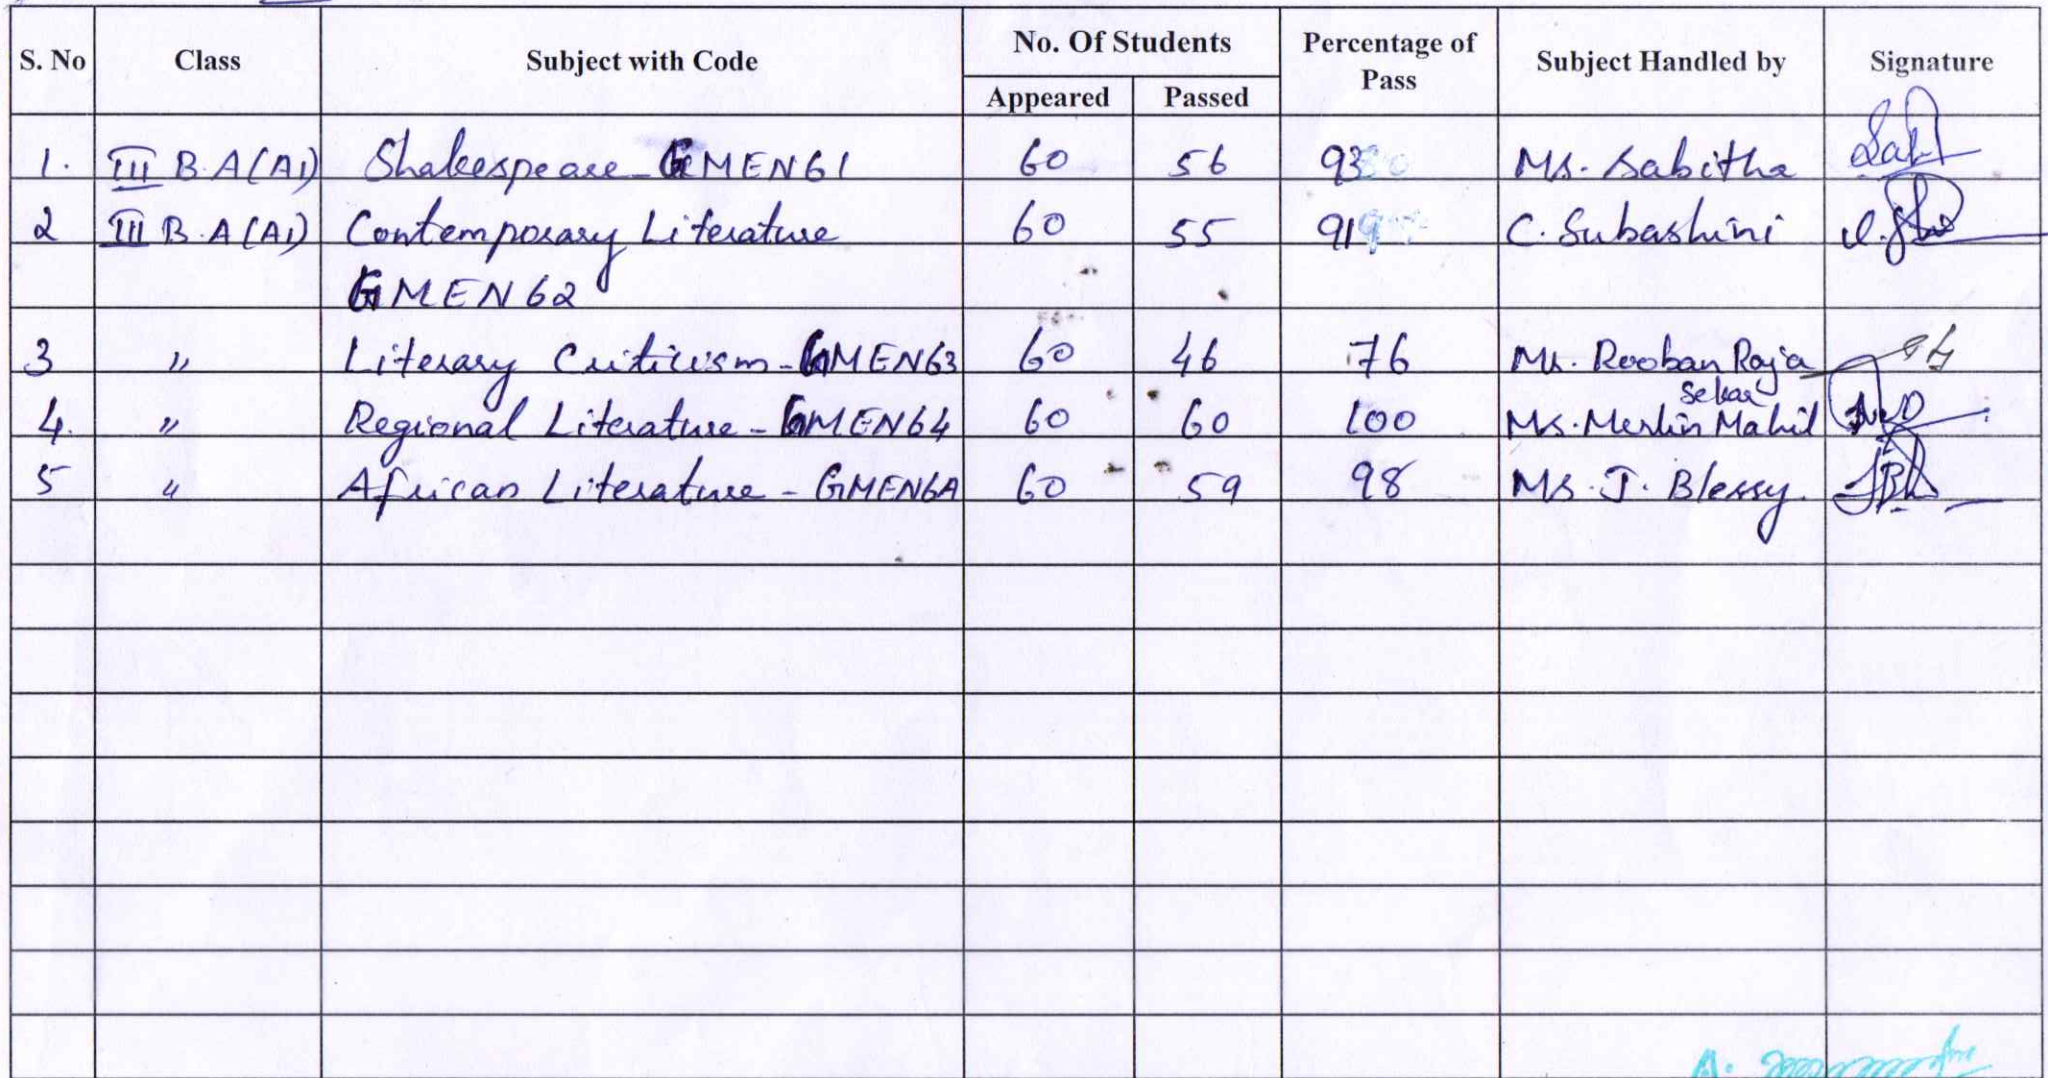 S. No Class Subject with Code No. Of Students Percentage of Pass Subject Handled by Signature
Appeared Passed
1. III B.A(A1) Shakespeare - GMEN61 60 56 93 Ms. Sabitha
2 III B.A(A1) Contemporary Literature 60 55 91 C. Subashini
GMEN62
3 " Literary Criticism - GMEN63 60 46 76 Mr. Rooban Raja
Sekar
4. " Regional Literature - GMEN64 60 60 100 Ms. Merlin Mahil
5 " African Literature - GMEN6A 60 59 98 Ms. J. Blessy.